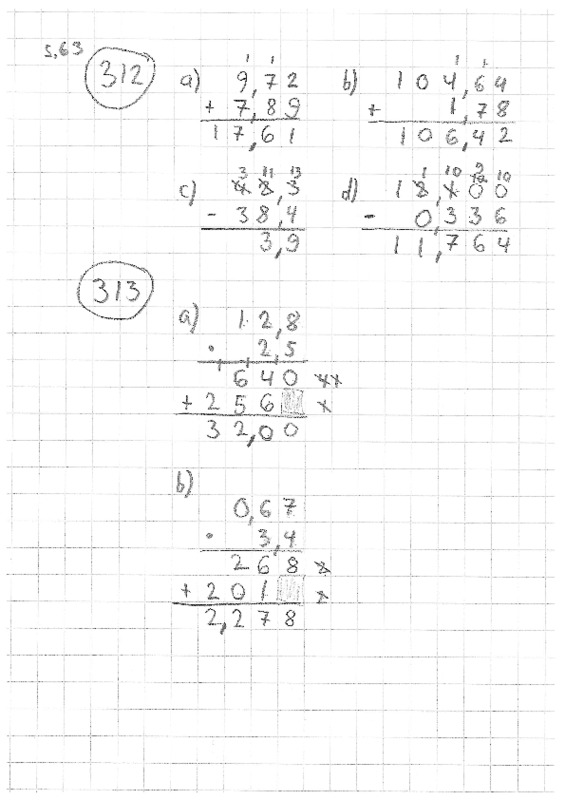 5,63
312
a)
1 1
9,72
+ 7,89
17,61
b)
1 1
104,64
+ 1,78
106,42
c)
3 11 13
42,3
- 38,4
3,9
d)
1 10 9 10
12,100
- 0,336
11,764
313
a)
12,8
· 2,5
640
+ 256
32,00
b)
0,67
· 3,4
268
+ 201
2,278